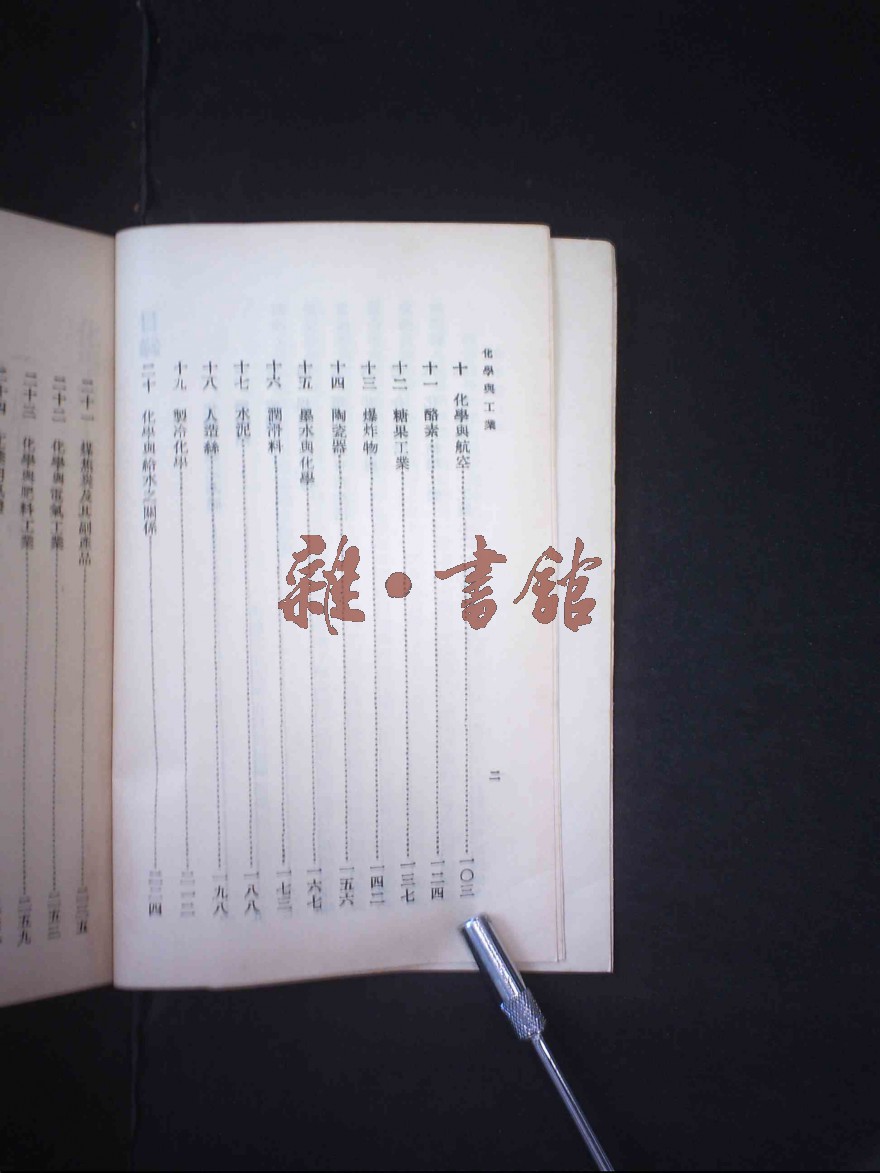 化學與工業
二
十 化學與航空 一〇三
十一 酪素 一二四
十二 糖果工業 一三七
十三 爆炸物 一四二
十四 陶瓷器 一五六
十五 墨水與化學 一六七
十六 潤滑料
十七 水泥 一八八
十八 人造絲 一九八
十九 製冷化學
二十 化學與給水之關係
二十一 煤焦炭及其副產品
二十二 化學與電氣工業
二十三 化學與肥料工業 二五九
二十四
雜·書館